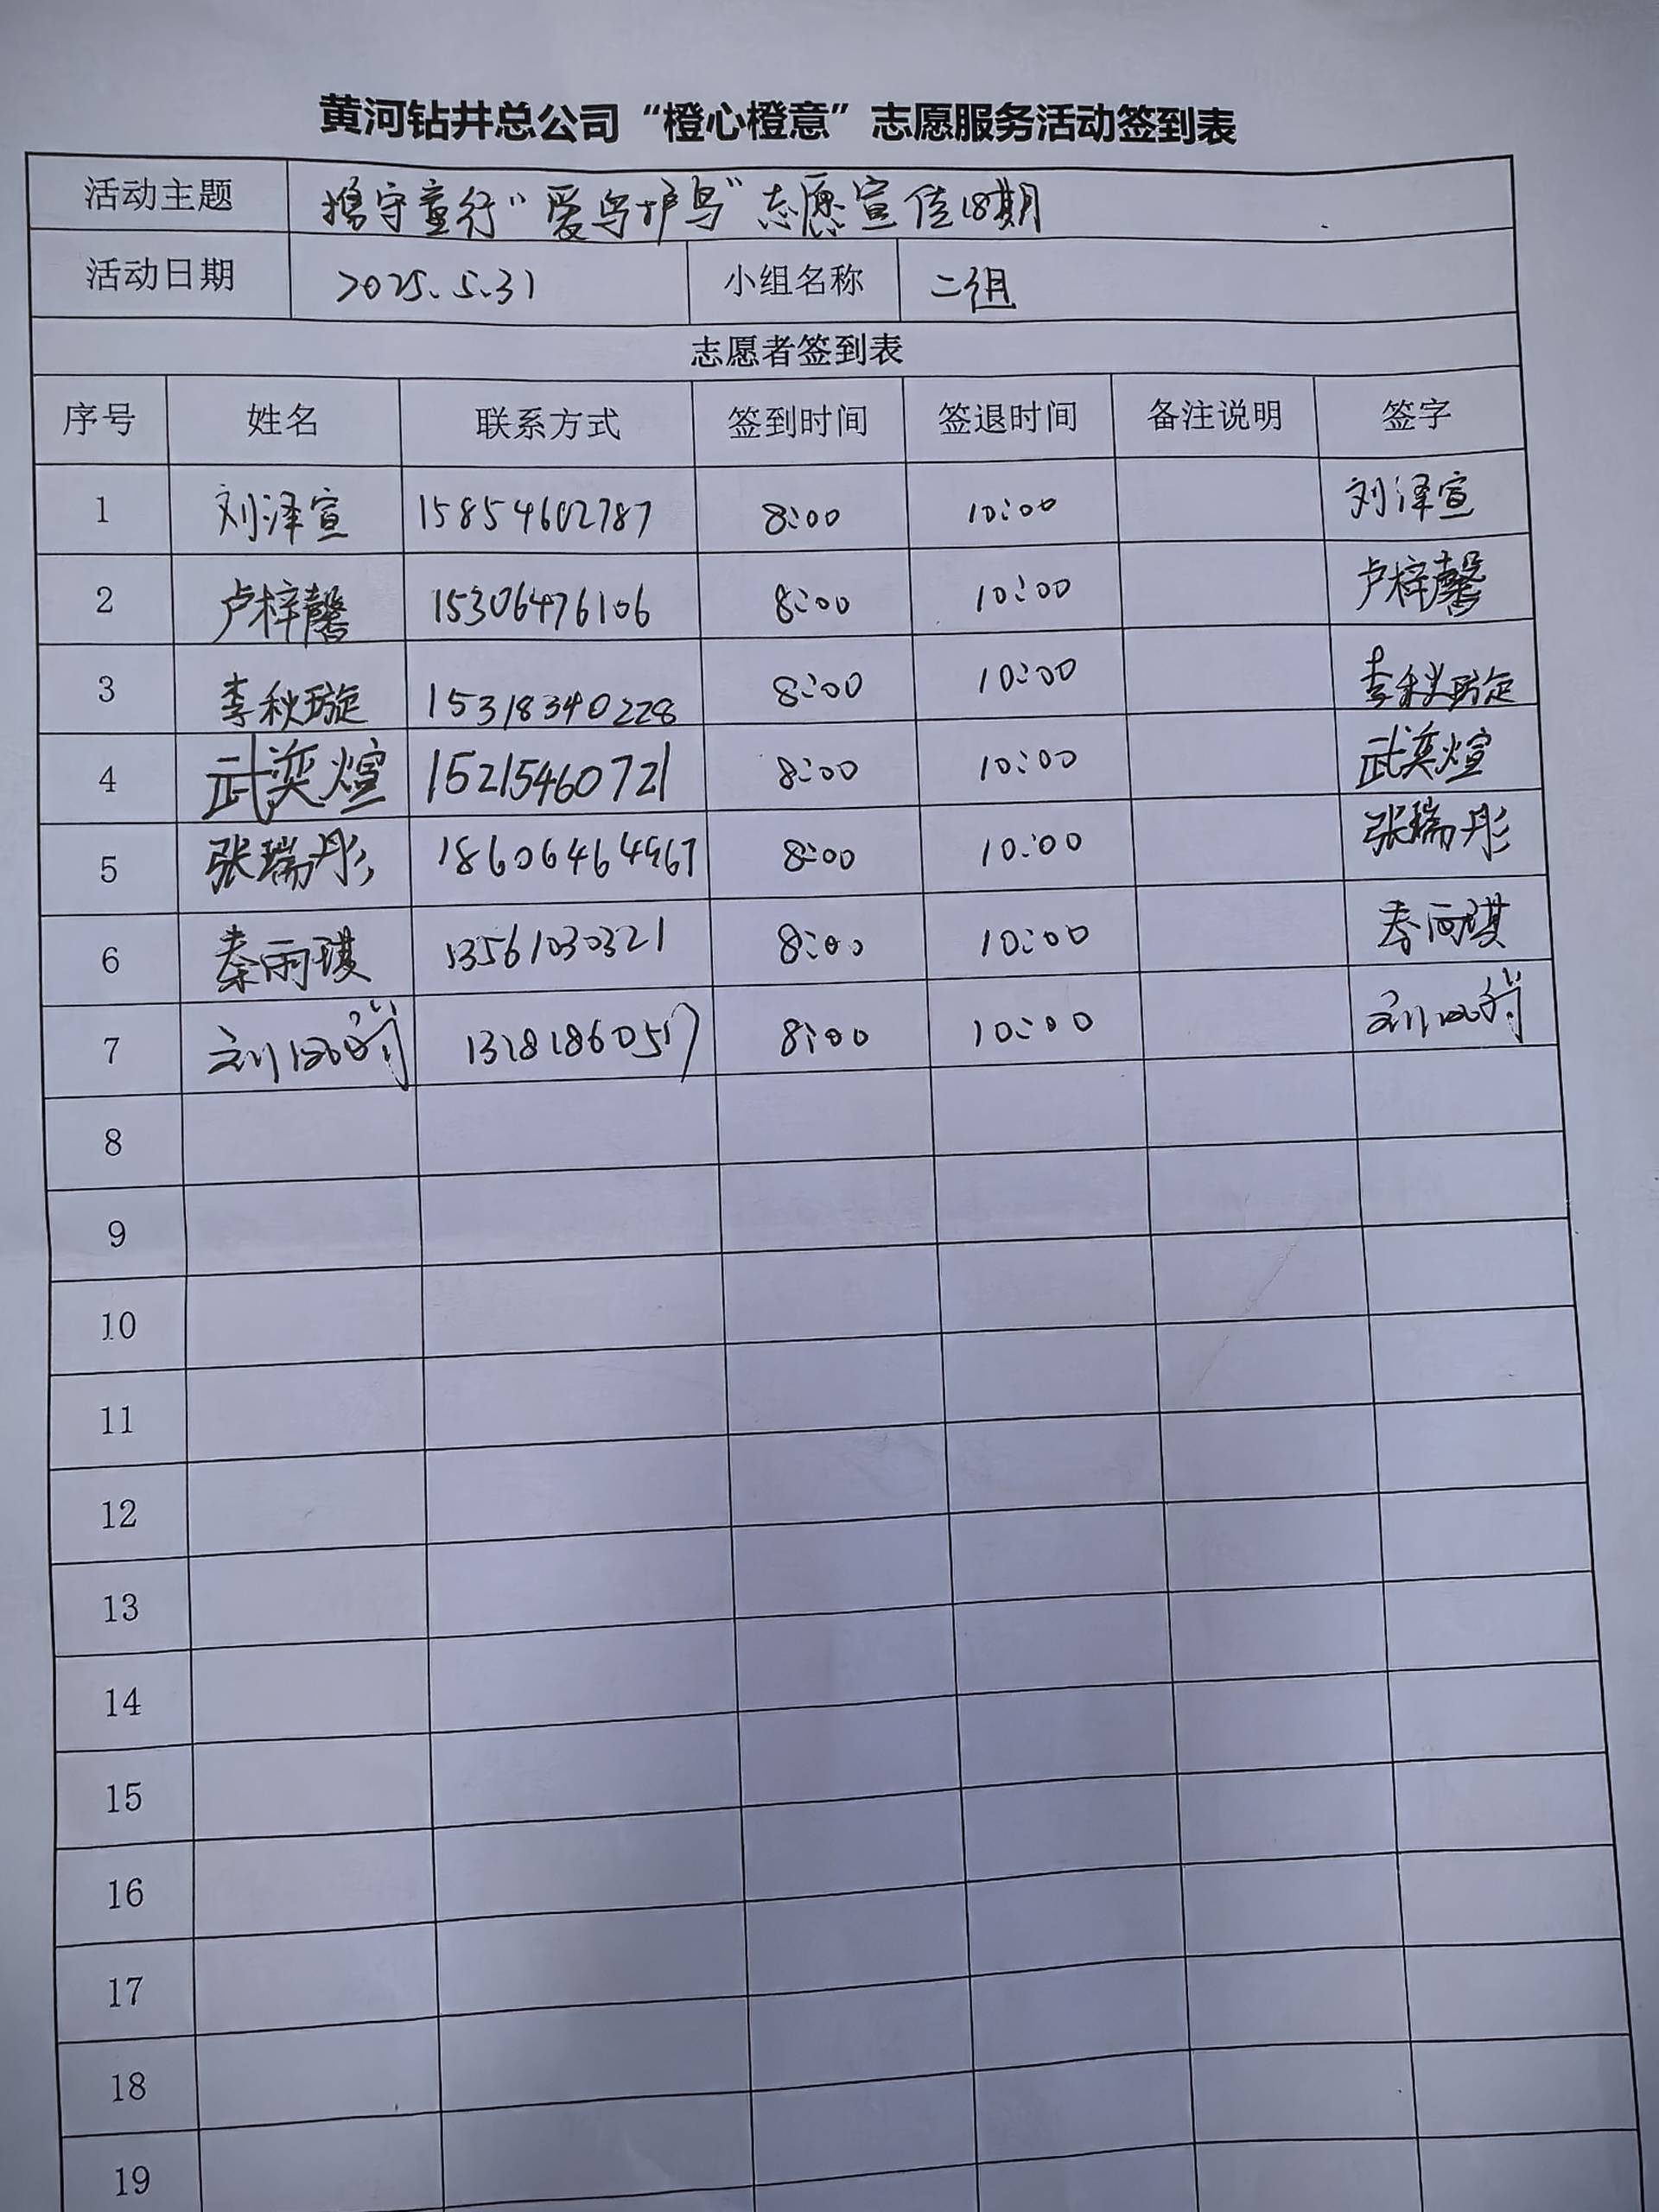 黄河钻井总公司“橙心橙意”志愿服务活动签到表
活动主题 携守童行“爱鸟护鸟”志愿宣传18期
活动日期 2025.5.31 小组名称 二组
志愿者签到表
序号 姓名 联系方式 签到时间 签退时间 备注说明 签字
1 刘泽宣 15854602787 8:00 10:00 刘泽宣
2 卢梓馨 15306476106 8:00 10:00 卢梓馨
3 李秋璇 15318340228 8:00 10:00 李秋璇
4 武奕煊 15215460721 8:00 10:00 武奕煊
5 张瑞彤 18606464967 8:00 10:00 张瑞彤
6 秦雨琪 13561030321 8:00 10:00 秦雨琪
7 8:00 10:00
8
9
10
11
12
13
14
15
16
17
18
19